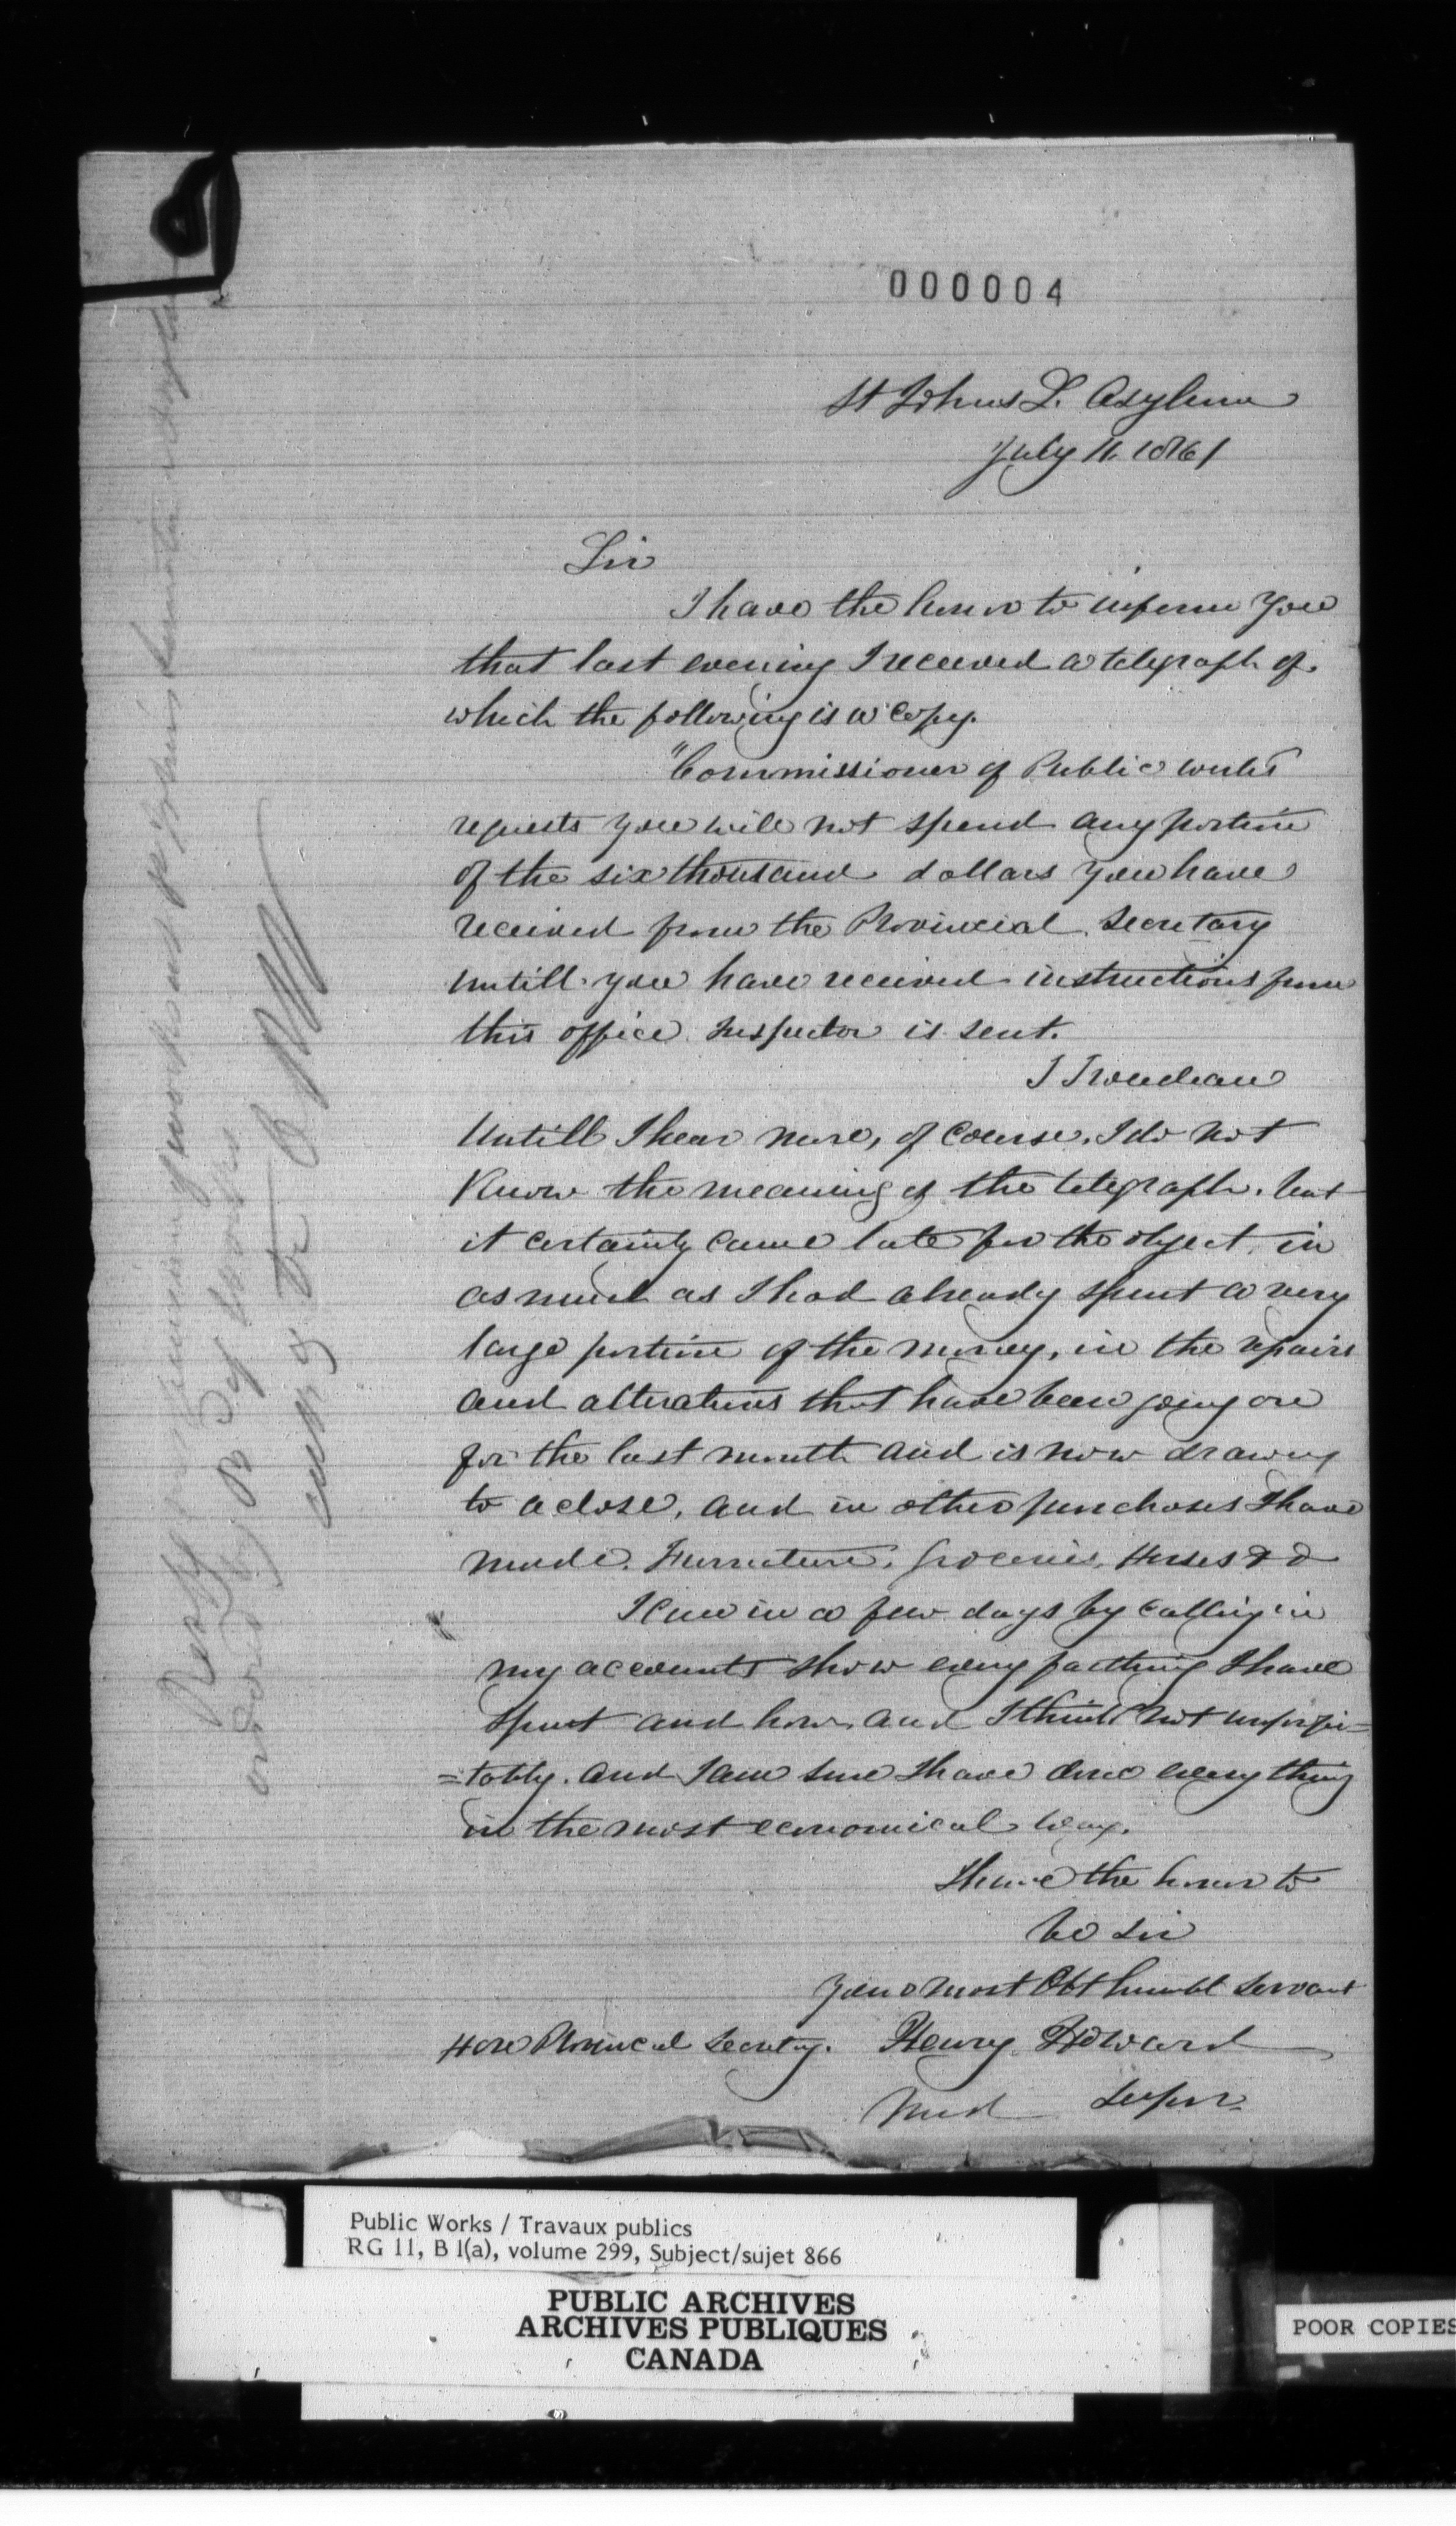 000004
St Johns L. Asylum
July 11. 1861
Sir
I have the honor to inform you
that last evening I received a telegraph of
which the following is a copy.
"Commissioner of Public works
requests you will not spend any portion
of the six thousand dollars you have
received from the Provincial Secretary
untill you have received instructions from
this office Inspector is sent.
J Trudeau
Untill I hear more, of course, I do not
know the meaning of the telegraph, but
it certainly came late for the object, in
as much as I had already spent a very
large portion of the money, in the repairs
and alterations that have been going on
for the last month and is now drawing
to a close, and in other purchases I have
made. Furniture, Groceries, Horses &c
I can in a few days by calling in
my accounts show every farthing I have
spent and how, and I think not unprofi=
=tably. and I am sure I have done every thing
in the most economical way.
I have the honor to
be Sir
Your most Obt humbl Servant
Hon Provincal Secretary. Henry Howard
Med Super
Public Works / Travaux publics
RG 11, B 1(a), volume 299, Subject/sujet 866
PUBLIC ARCHIVES
ARCHIVES PUBLIQUES
CANADA
POOR COPIES